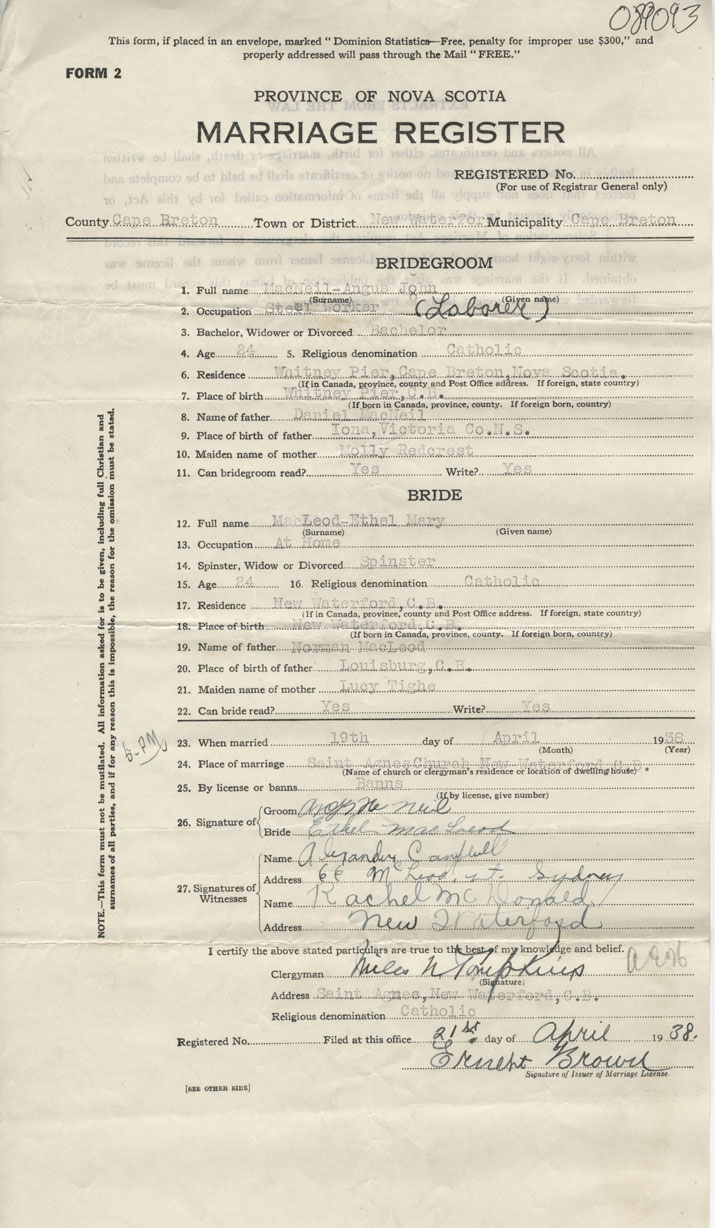 089093
This form, if placed in an envelope, marked "Dominion Statistics—Free, penalty for improper use $300," and
properly addressed will pass through the Mail "FREE."
FORM 2
PROVINCE OF NOVA SCOTIA
MARRIAGE REGISTER
REGISTERED No.
(For use of Registrar General only)
County Cape Breton Town or District New Waterford Municipality Cape Breton
BRIDEGROOM
1. Full name MacNeil-Angus John
(Surname) (Given name)
2. Occupation Steel Worker (Laborer)
3. Bachelor, Widower or Divorced Bachelor
4. Age 24 5. Religious denomination Catholic
6. Residence Whitney Pier, Cape Breton, Nova Scotia.
(If in Canada, province, county and Post Office address. If foreign, state country)
7. Place of birth Whitney Pier, C.B.
(If born in Canada, province, county. If foreign born, country)
8. Name of father Daniel MacNeil
9. Place of birth of father Iona, Victoria Co. N.S.
10. Maiden name of mother Molly Redcrest
11. Can bridegroom read? Yes Write? Yes
BRIDE
12. Full name MacLeod-Ethel Mary
(Surname) (Given name)
13. Occupation At Home
14. Spinster, Widow or Divorced Spinster
15. Age 24 16. Religious denomination Catholic
17. Residence New Waterford, C.B.
(If in Canada, province, county and Post Office address. If foreign, state country)
18. Place of birth New Waterford, C.B.
(If born in Canada, province, county. If foreign born, country)
19. Name of father Norman MacLeod
20. Place of birth of father Louisburg, C.B.
21. Maiden name of mother Lucy Tighe
22. Can bride read? Yes Write? Yes
5-PM
23. When married 19th day of April 1938
(Month) (Year)
24. Place of marriage Saint Agnes Church New Waterford, C.B.
(Name of church or clergyman's residence or location of dwelling house)
25. By license or banns Banns
(If by license, give number)
26. Signature of
Groom Mc Neil
Bride Ethel MacLeod
27. Signatures of Witnesses
Name Alexander Campbell
Address McLeod st. Sydney
Name Rachel McDonald
Address New Waterford
I certify the above stated particulars are true to the best of my knowledge and belief.
Clergyman Miles N Tompkins
(Signature)
Address Saint Agnes, New Waterford, C.B.
Religious denomination Catholic
Registered No. Filed at this office 21st day of April 1938.
Ernest Brown
Signature of Issuer of Marriage License
[SEE OTHER SIDE]
NOTE.—This form must not be mutilated. All information asked for is to be given, including full Christian and
surnames of all parties, and if for any reason this is impossible, the reason for the omission must be stated.